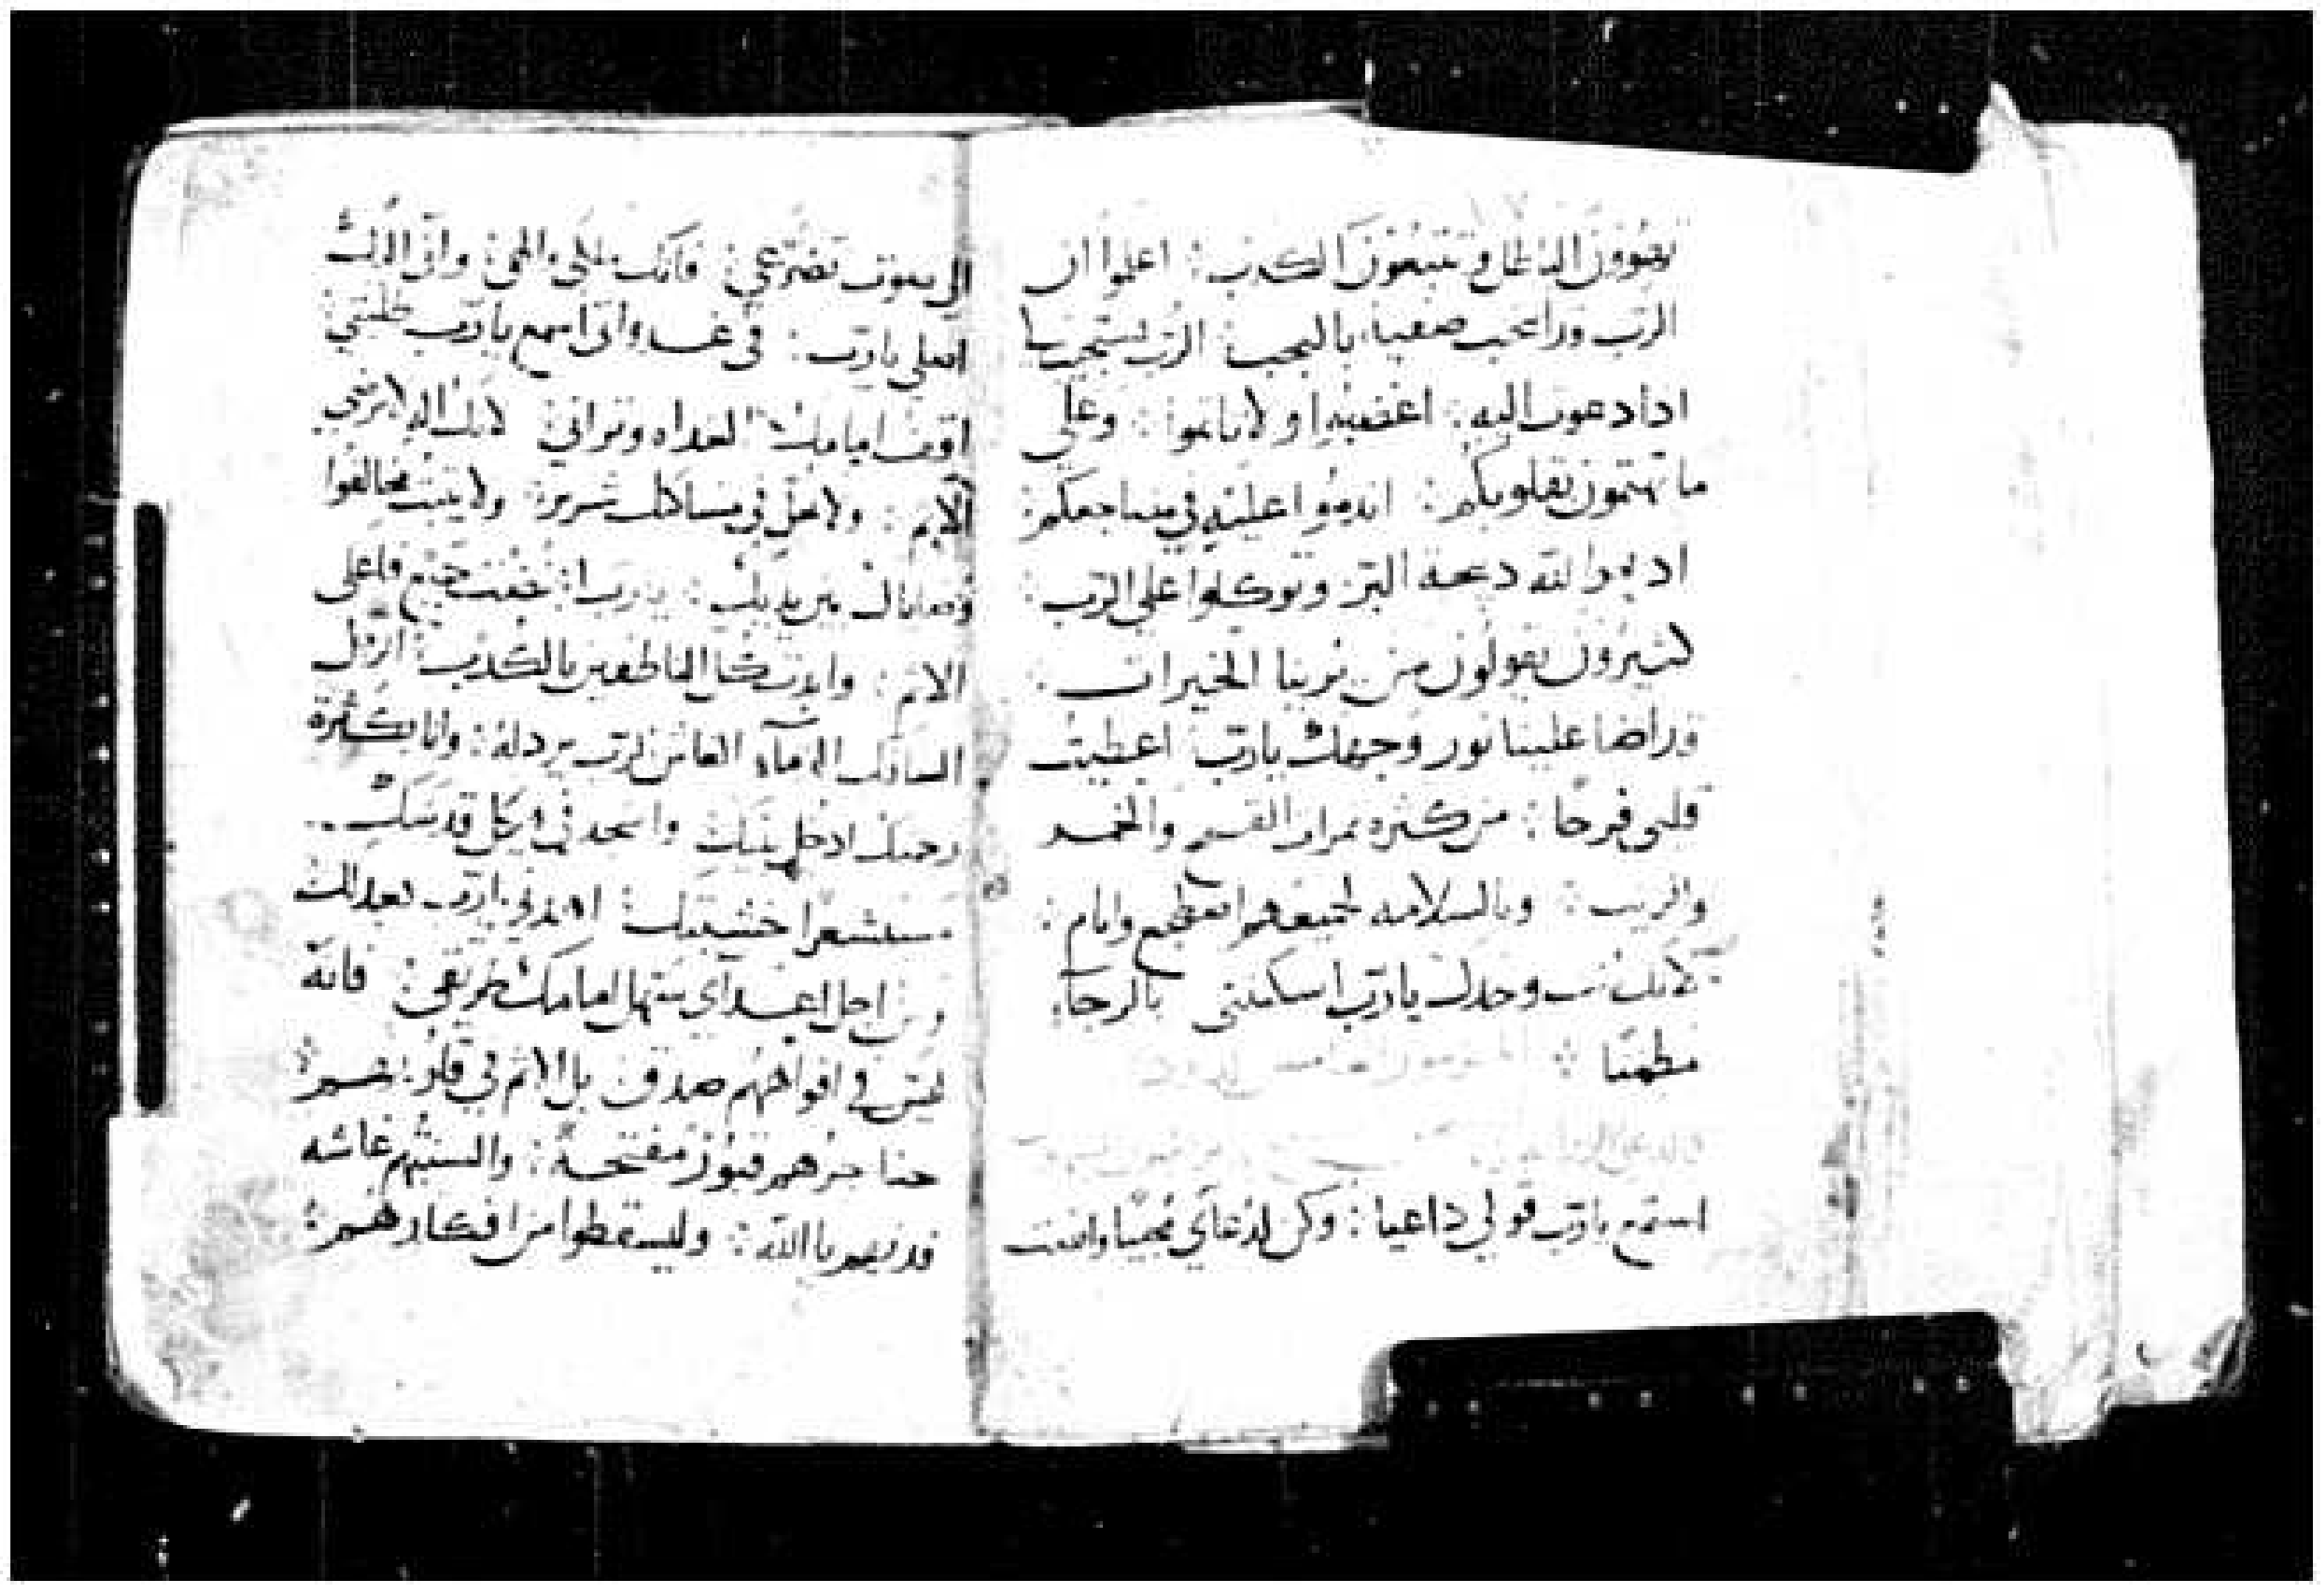 الباطل وتتبعون الكدب : اعلموا ان
الرب قد اعجب صفيه بالعجب : الرب يستجيب لي
ادا دعوت اليه : اغضبوا ولا تاتموا : وعلى
ما تهتمون بقلوبكم : اندموا عليه في مضاجعكم :
ادبحوا لله دبيحة البر وتوكلوا على الرب :
كثيرون يقولون من يرينا الخيرات :
قد اضا علينا نور وجهك يا رب اعطيت
قلبي فرحا : من كثرة ثمرات القمح والخمر
والزيت : وبالسلامه جميعهم اضطجع وانام :
لانك انت وحدك يا رب اسكنتني بالرجاء
مطمئنا
استمع يا رب قولي داعيا : وكن لدعاي مجيبا وانصت
الى صوت تضرعي : فانك ملكي والهي : واني اليك
اصلي يا رب : في غد واني اسمع يا رب طلبتي :
اقف امامك بالغداه وتراني : لانك اله لا ترضى
الاثم : ولا يحل في مساكنك شرير : ولا يثبت مخالفوا
بين يديك : يا رب ابغضت جميع فاعلي
الاثم : وابدت كل الناطقين بالكدب :
السافك الدماء الغاش الرب يردله : وانا بكثرة
رحمتك ادخل بيتك واسجد في هيكل قدسك
مستشعرا خشيتك : اهدني يا رب بعدلك
ومن اجل اعداي سهل امامك طريقي : فانه
ليس في افواههم صدق بل الاثم في قلوبهم :
حناجرهم قبور مفتحة : والسنتهم غاشه
فدنهم يا الله : وليسقطوا من افكارهم :